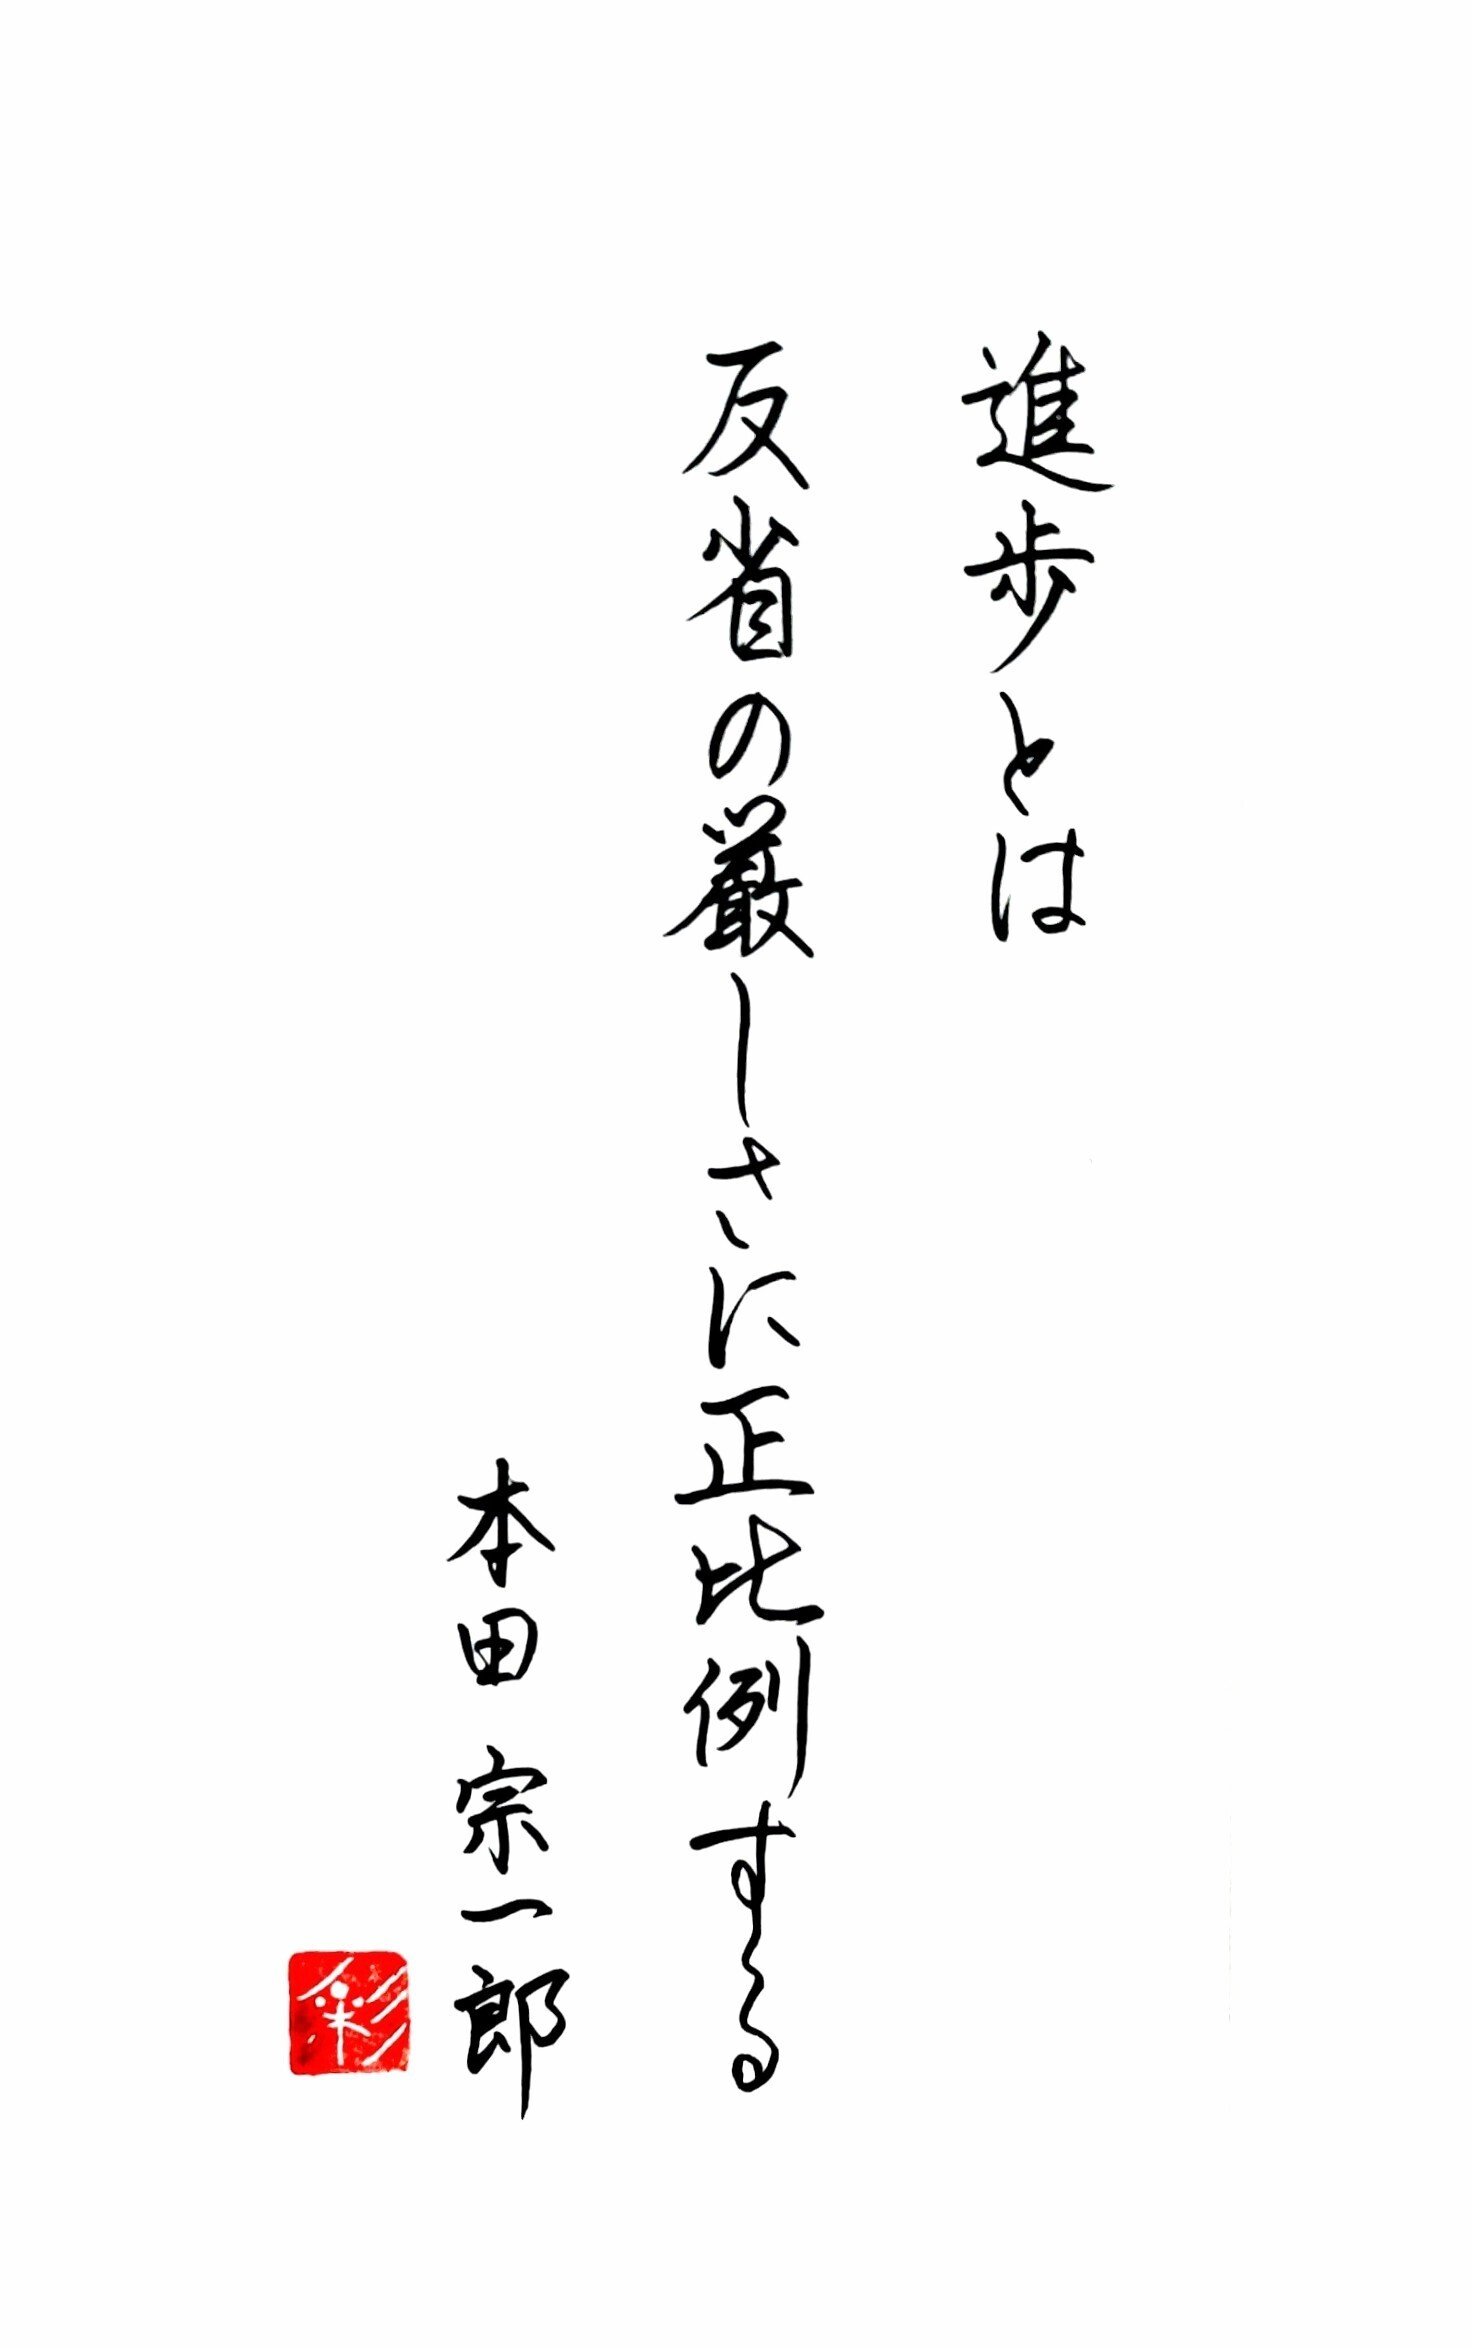 進歩とは
反省の厳しさに正比例する
本田 宗一郎
彩